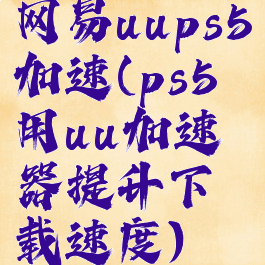 网易uups5
加速(ps5
用uu加速
器提升下
载速度)